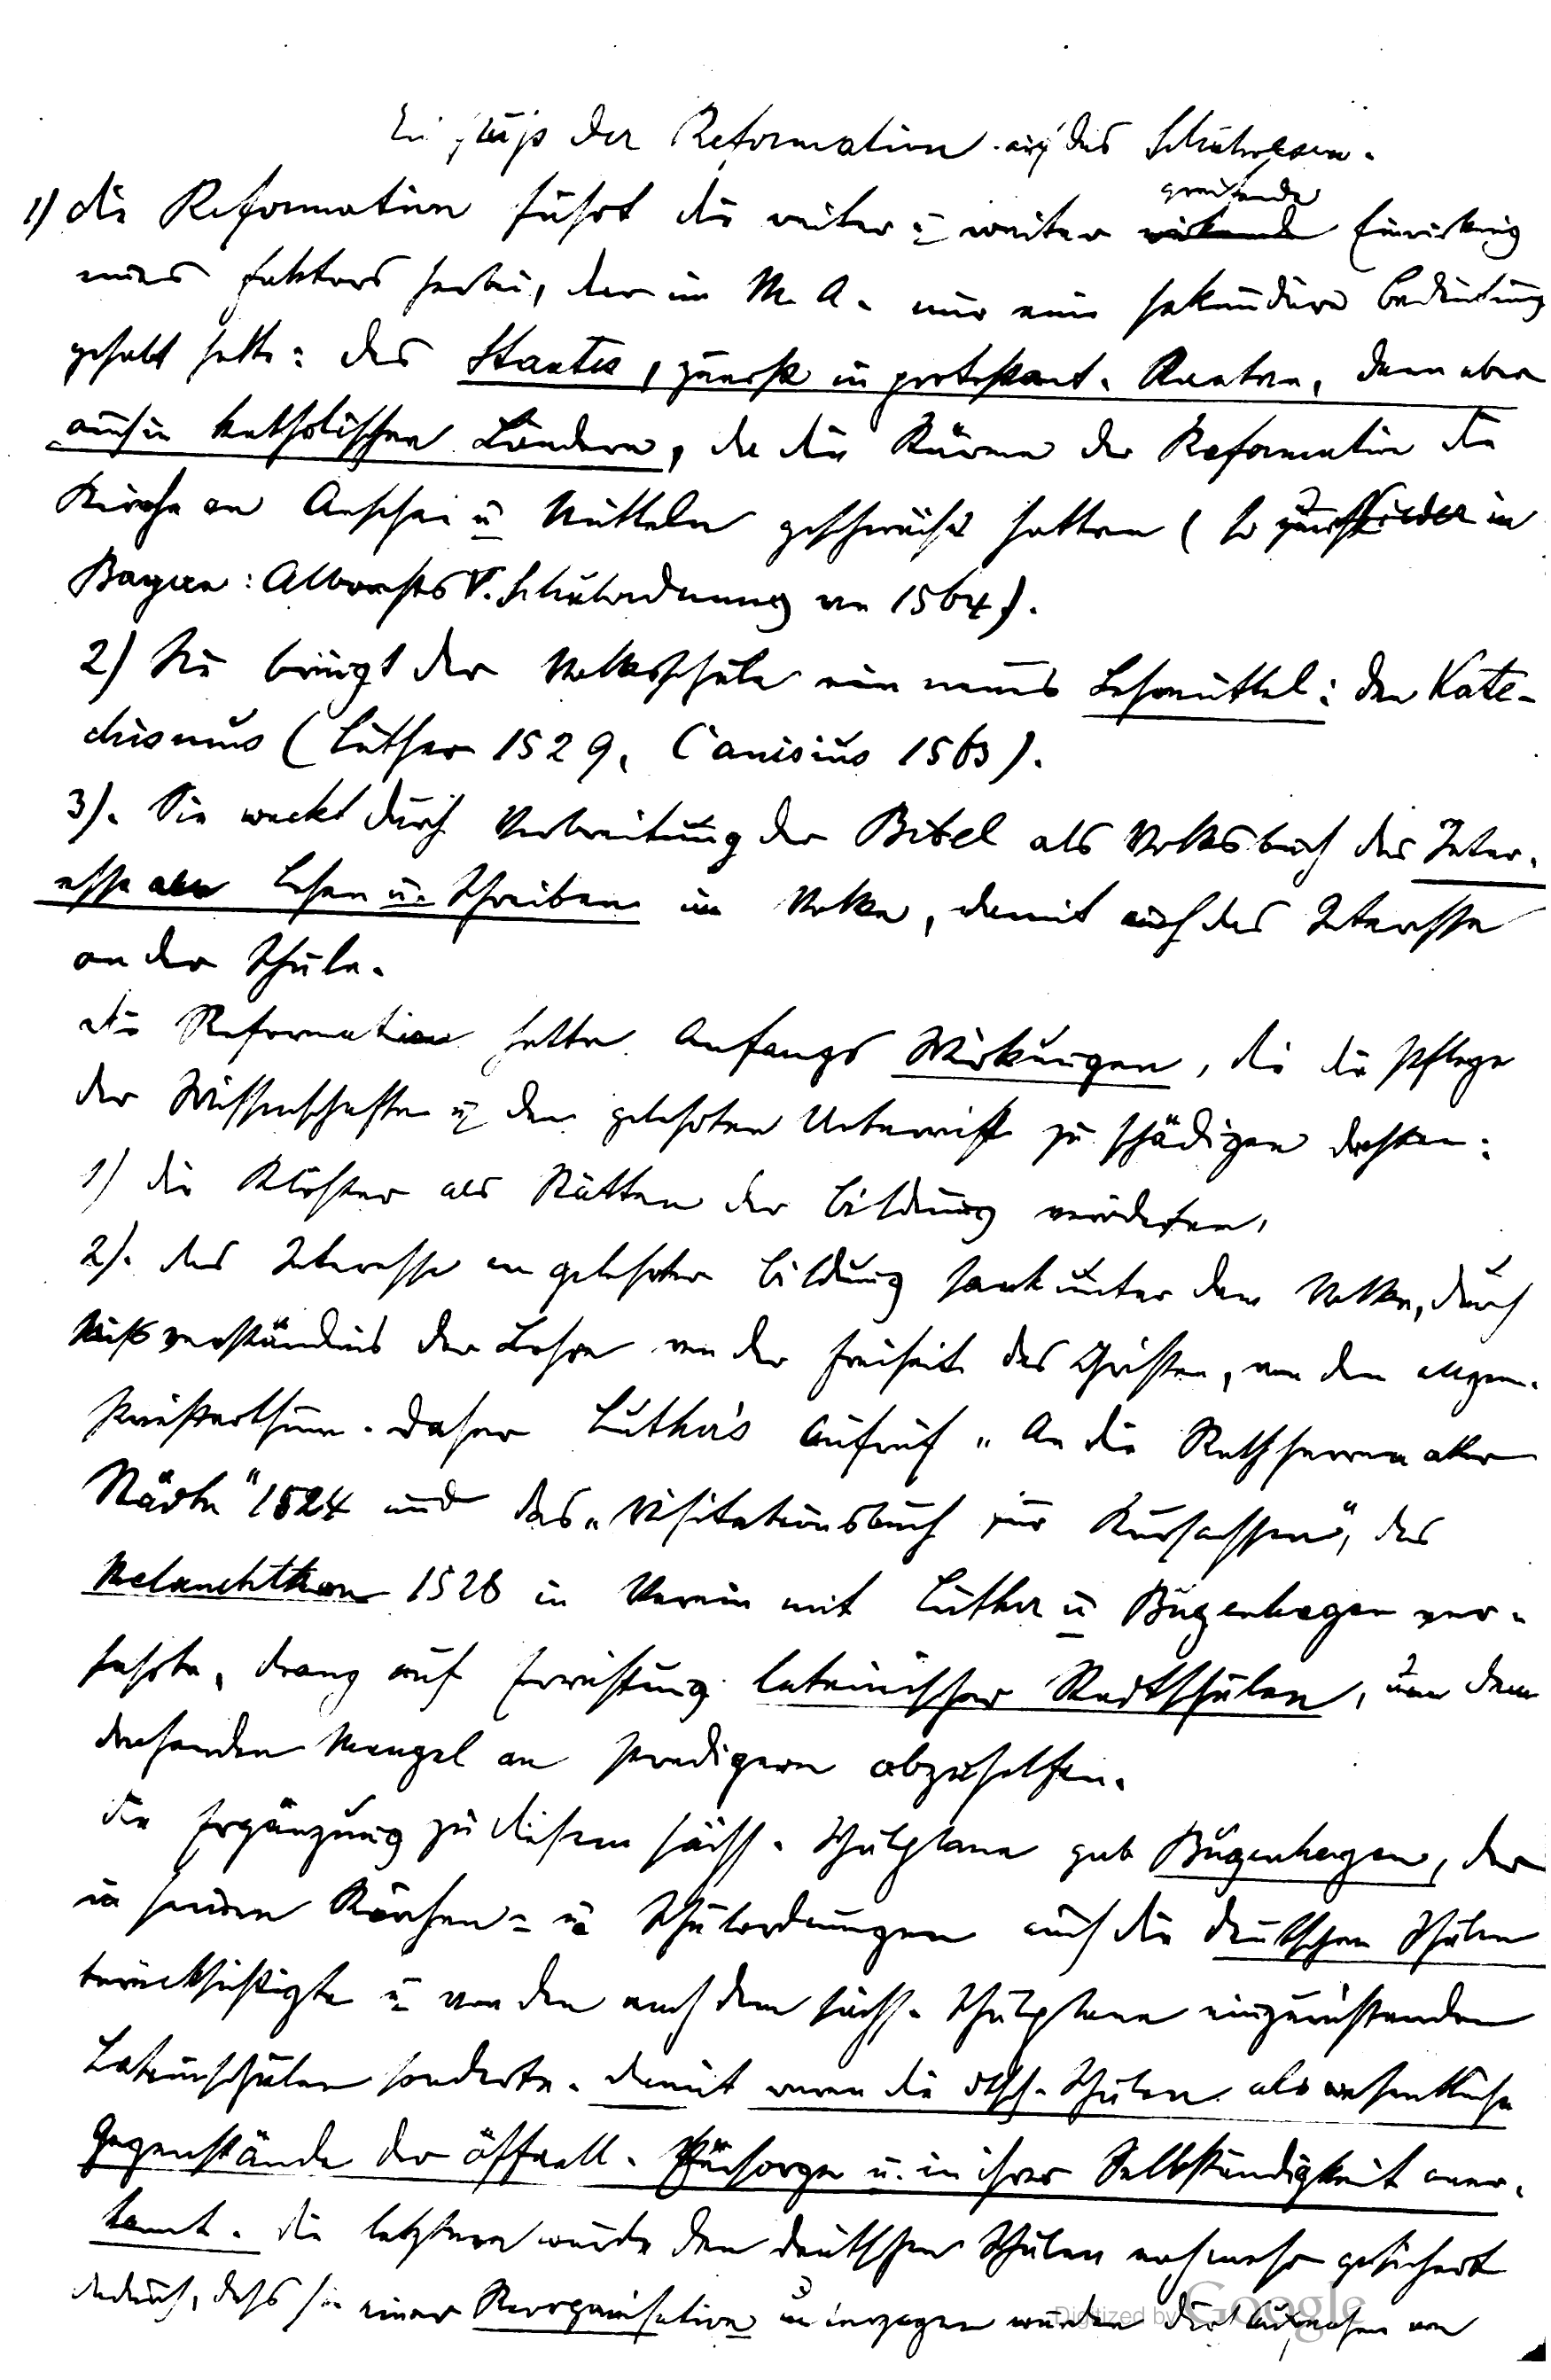 Einfluss der Reformation auf das Schulwesen.
1) die Reformation führt die weiter u. weiter greifende Einwirkung
eines Faktors herbei, der im M. A. nur eine sekundäre Bedeutung
gehabt hatte: des Staates, zuerst in protestant. Staaten, dann aber
auch in katholischen Ländern, da die Stürme der Reformation die
Kirche an Ansehen u Mitteln geschwächt hatten (so in
Bayern: Albrechts V. Schulordnung von 1564).
2) Sie bringt der Volksschule ein neues Lehrmittel: den Kate-
chismus (Luther 1529, Canisius 1563).
3). Sie weckt durch Verbreitung der Bibel als Volksbuch das Inter-
esse am Lesen u. Schreiben im Volke, damit auch das Interesse
an der Schule.
die Reformation hatte Anfangs Wirkungen, die die Pflege
der Wissenschaften u. den gelehrten Unterricht zu schädigen drohten:
1) die Klöster als Stätten der Bildung verödeten,
2). das Interesse an gelehrter Bildung sank unter dem Volke, durch
Mißverständnis der Lehre von der Freiheit des Christen, von dem allgem.
Priesterthum. Daher Luther's Aufruf "An die Rathsherren aller
Städte" 1524 und das "Visitationsbuch für Kursachsen", das
Melanchthon 1528 in Verein mit Luther u Bugenhagen ver-
fasste, drang auf Errichtung lateinischer Stadtschulen, um dem
drohenden Mangel an Predigern abzuhelfen.
die Ergänzung zu diesem sächs. Schulplane gab Bugenhagen, der
in seinen Kirchen- u. Schulordnungen auch die deutschen Schulen
berücksichtigte u. von den nach dem sächs. Schulplane einzurichtenden
Lateinschulen sonderte. damit waren die dtsch. Schulen als wesentliche
Gegenstände der öffentl. Fürsorge u. in ihrer Selbständigkeit aner-
kannt. die letztere wurde den deutschen Schulen noch mehr gesichert
dadurch, dass sie einer Reorganisation unterzogen wurden von
Digitized by Google